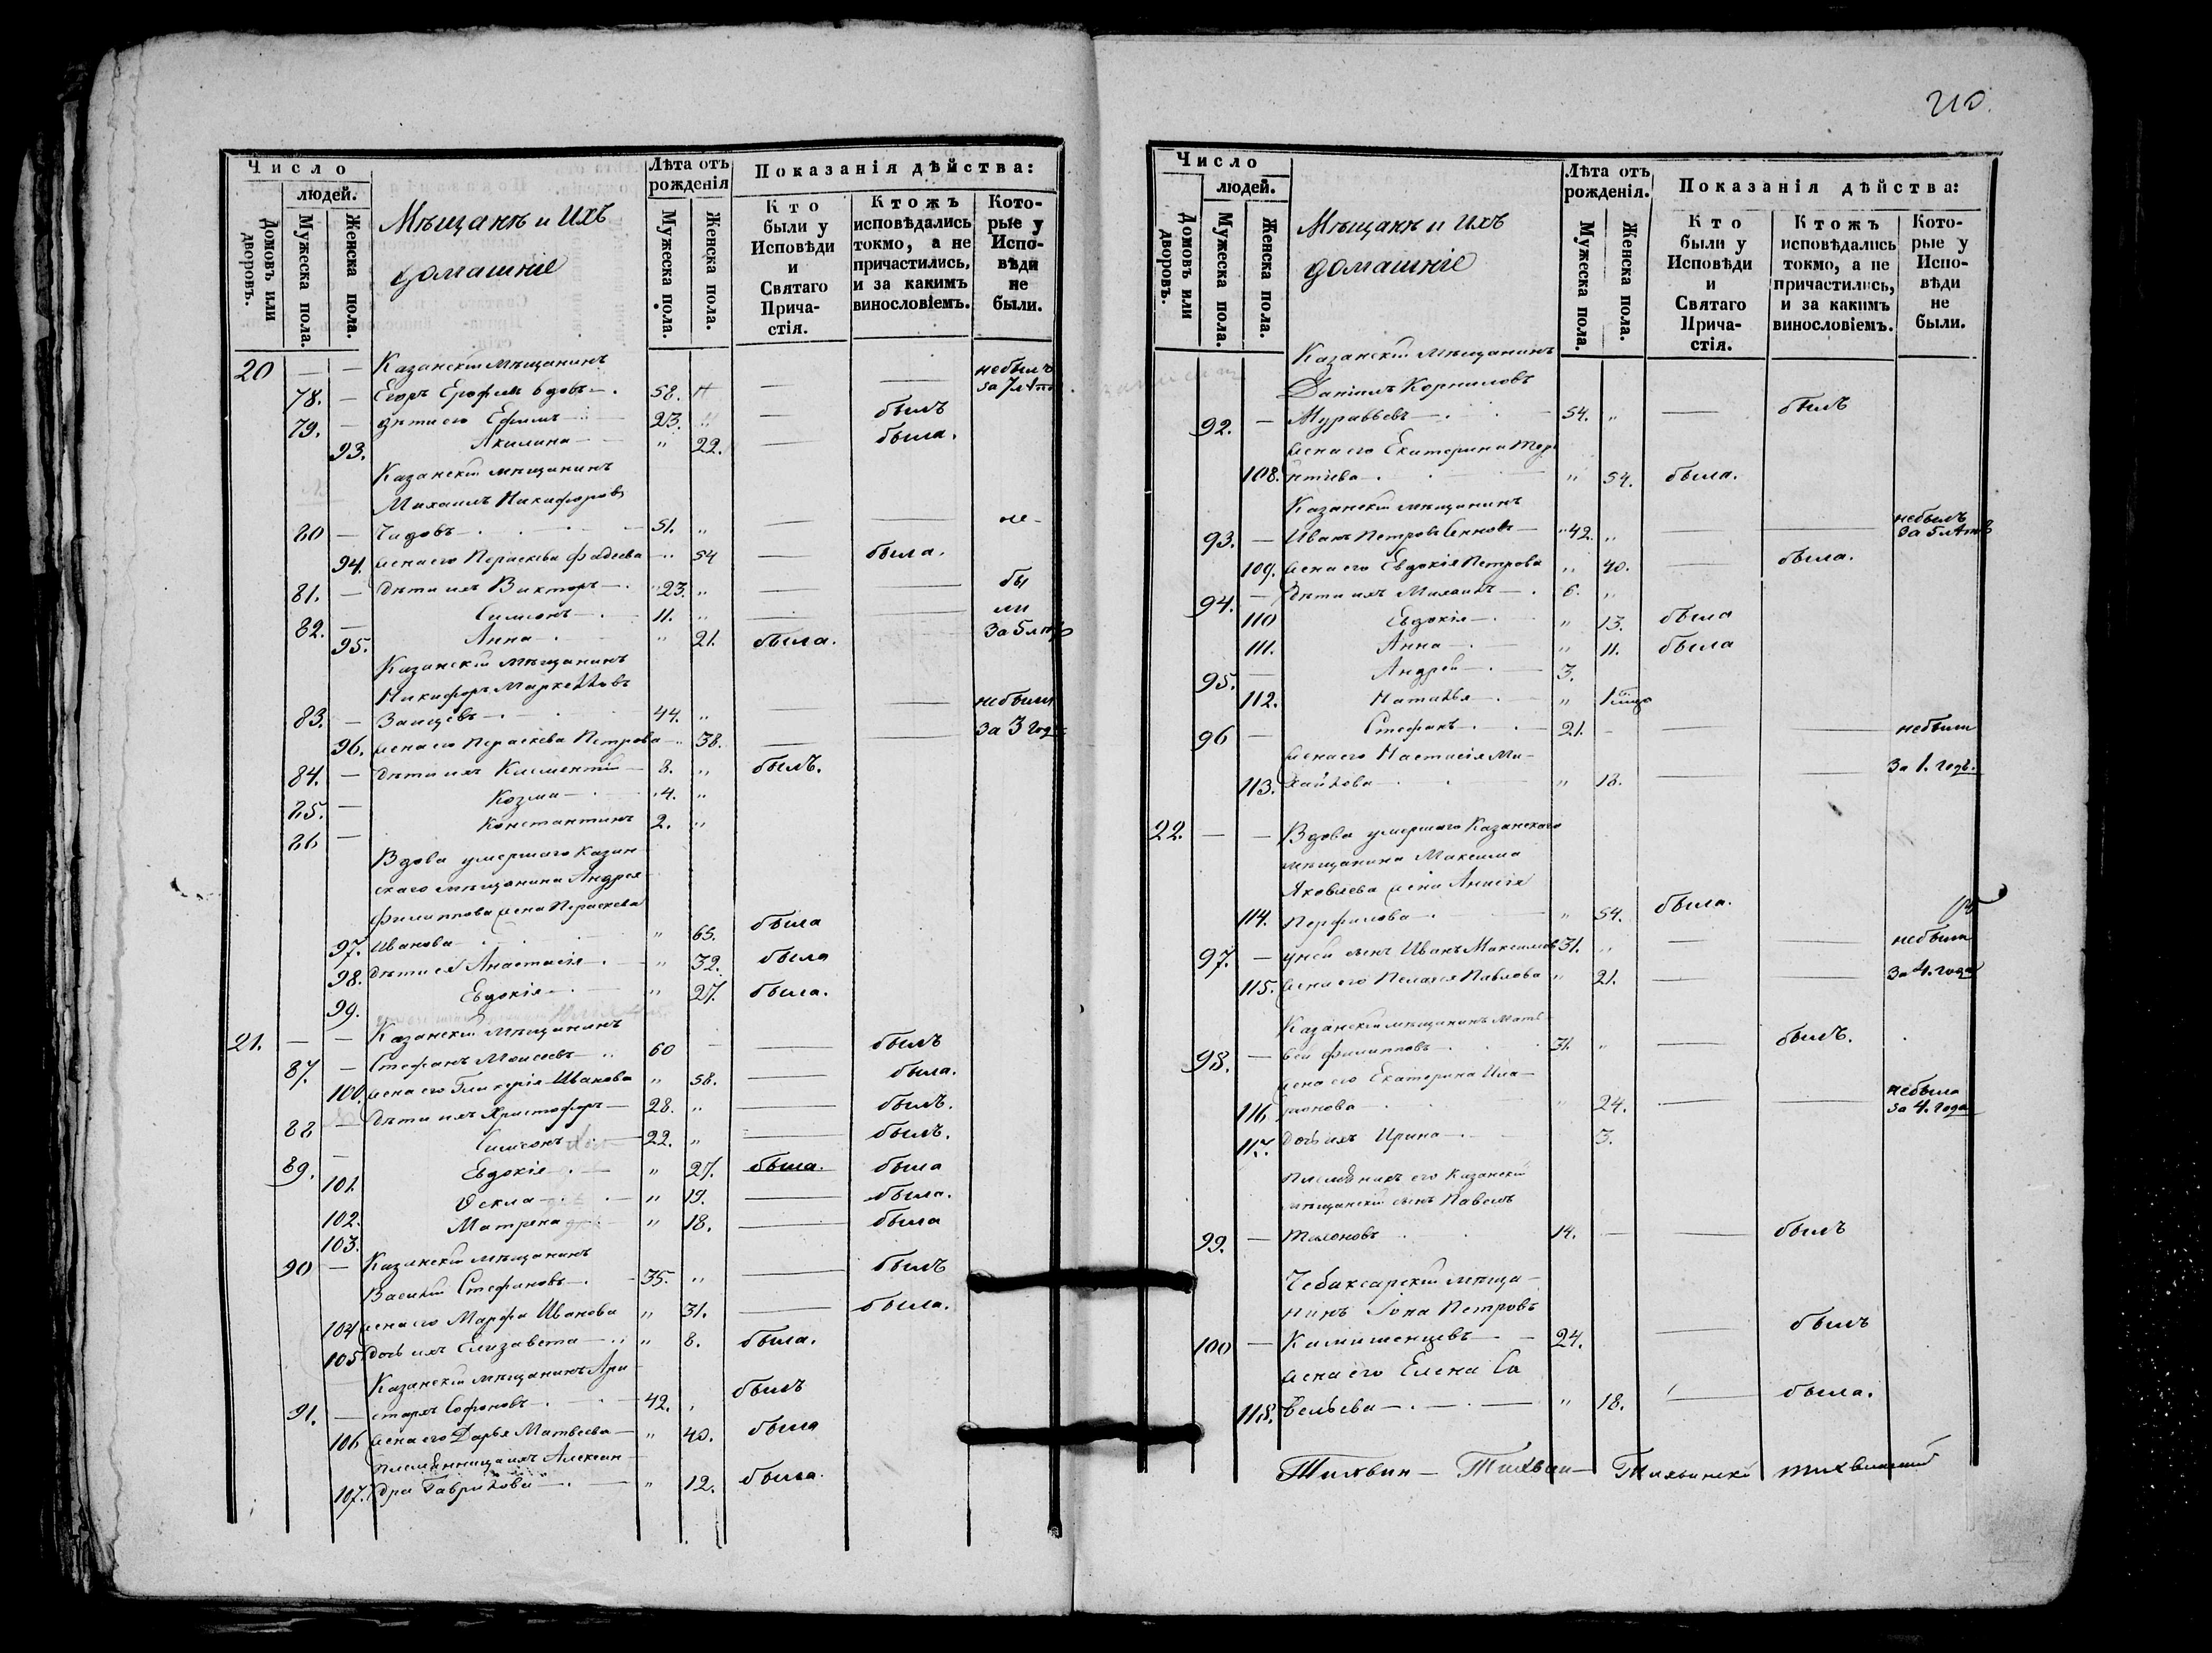 210.
Число
людей.
Домовъ или дворовъ.
Мужеска пола.
Женска пола.
Мѣщанъ и Ихъ
домашніе
Лѣта отъ рожденія
Мужеска пола.
Женска пола.
Показанія дѣйства:
Кто были у Исповѣди и Святаго Прича-стія.
Ктожъ исповѣдались токмо, а не причастились, и за какимъ винословіемъ.
Кото-рые у Испо-вѣди не были.
20 — — Казанскій мѣщанинъ небылъ
78. — Егоръ Ерофѣевъ вдовъ — 58. — — за 7 лѣтъ
79. — дѣти его Ефимъ — 23. " — былъ
93. Акилина — " 22. — была.
Казанскій мѣщанинъ
Михаилъ Никифоровъ
80 — Чадовъ — 51. " — — не-
94. жена его Параскева Фадѣева — " 54 — была.
81. — дѣти ихъ Викторъ — " 23. " — — бы
82. — Симеонъ — 11. " — — ли
95. Анна — " 21. была. За 5 лѣтъ
Казанскій мѣщанинъ
Никифоръ Маркелловъ
83. — Заицевъ — 44. " — — небыли
96. жена его Параскева Петрова — " 38. — — За 3 года
84. — дѣти ихъ Климентій — 8. " былъ.
85. — Козма — 4. "
86 — Константинъ 2. "
Вдова умершаго Казан
скаго мѣщанина Андрея
Филиппова жена Параскева
97. Иванова — " 65. была
98. дѣти ея Анастасія — " 32. была
99. Евдокія — " 27. была.
21. — — Казанскій мѣщанинъ
87. — Стефанъ Моисеевъ — 60 — — былъ
100. жена его Гликерія Иванова " 58. — была.
88 — дѣти ихъ Христофоръ — 28. " — былъ.
89. — Симеонъ — 22. " — былъ.
101. Евдокія — " 27. была. была
102. Ѳекла — " 19. — была.
103. Матрена " 18. — была
90 — Казанскій мѣщанинъ
Василій Стефановъ — 35. " — былъ
104 жена его Марфа Иванова " 31. — была.
105 дочь ихъ Елизавета — " 8. была.
Казанскій мѣщанинъ Ари
91. — стархъ Софоновъ — 42. былъ
106 жена его Дарья Матвеева — " 40. была
племянница ихъ Алексан
107. дра Гаврилова — " 12. была.
Число
людей.
Домовъ или дворовъ.
Мужеска пола.
Женска пола.
Мѣщанъ и Ихъ
домашніе
Лѣта отъ рожденія.
Мужеска пола.
Женска пола.
Показанія дѣйства:
Кто были у Исповѣди и Святаго Прича-стія.
Ктожъ исповѣдались токмо, а не причастились, и за какимъ винословіемъ.
Кото-рые у Испо-вѣди не были.
Казанскій мѣщанинъ
Даніилъ Корниловъ
92. — Муравьевъ — 54. " — былъ
жена его Екатерина Тер
108. нтіева — " 54. была.
Казанскій мѣщанинъ
93. — Иванъ Петровъ — " 42. " — небылъ За 5 лѣтъ
109. жена его Евдокія Петрова " 40. — была.
94. — дѣти ихъ Михаилъ — 6. "
110 Евдокія — " 13. была
111. Анна — " 11. была
95. — Андрей — 3.
112. Наталья — " 1
96 — Стефанъ — 21. — — — небыли
жена его Настасія Ми-
113. хайлова — " 18. — — За 1. годъ.
22. — — Вдова умершаго Казанскаго
мѣщанина Максима
Яковлева жена Анисія
114. Перфилова — " 54. была.
97. — у ней сынъ Иванъ Максимов 31. " — — небыли
115. жена его Пелагея Павлова " 21. — — За 4. года
Казанскій мѣщанинъ Матѳ
98. — вей Филипповъ 31. " — былъ.
жена его Екатерина Ила-
116 ріонова — " 24. — — небыла за 4. года
117. дочь ихъ Ирина — 3.
племянникъ его Казанскій
мѣщанскій сынъ Павелъ
99. — Тихоновъ 14. — — былъ
Чебаксарскій мѣща-
нинъ Іона Петровъ
100 — Камышенцевъ — 24. — былъ
жена его Елена Са
118. вельева — " 18. — была.
Тихвин — Тихвин — Тихвинскі тихвинский